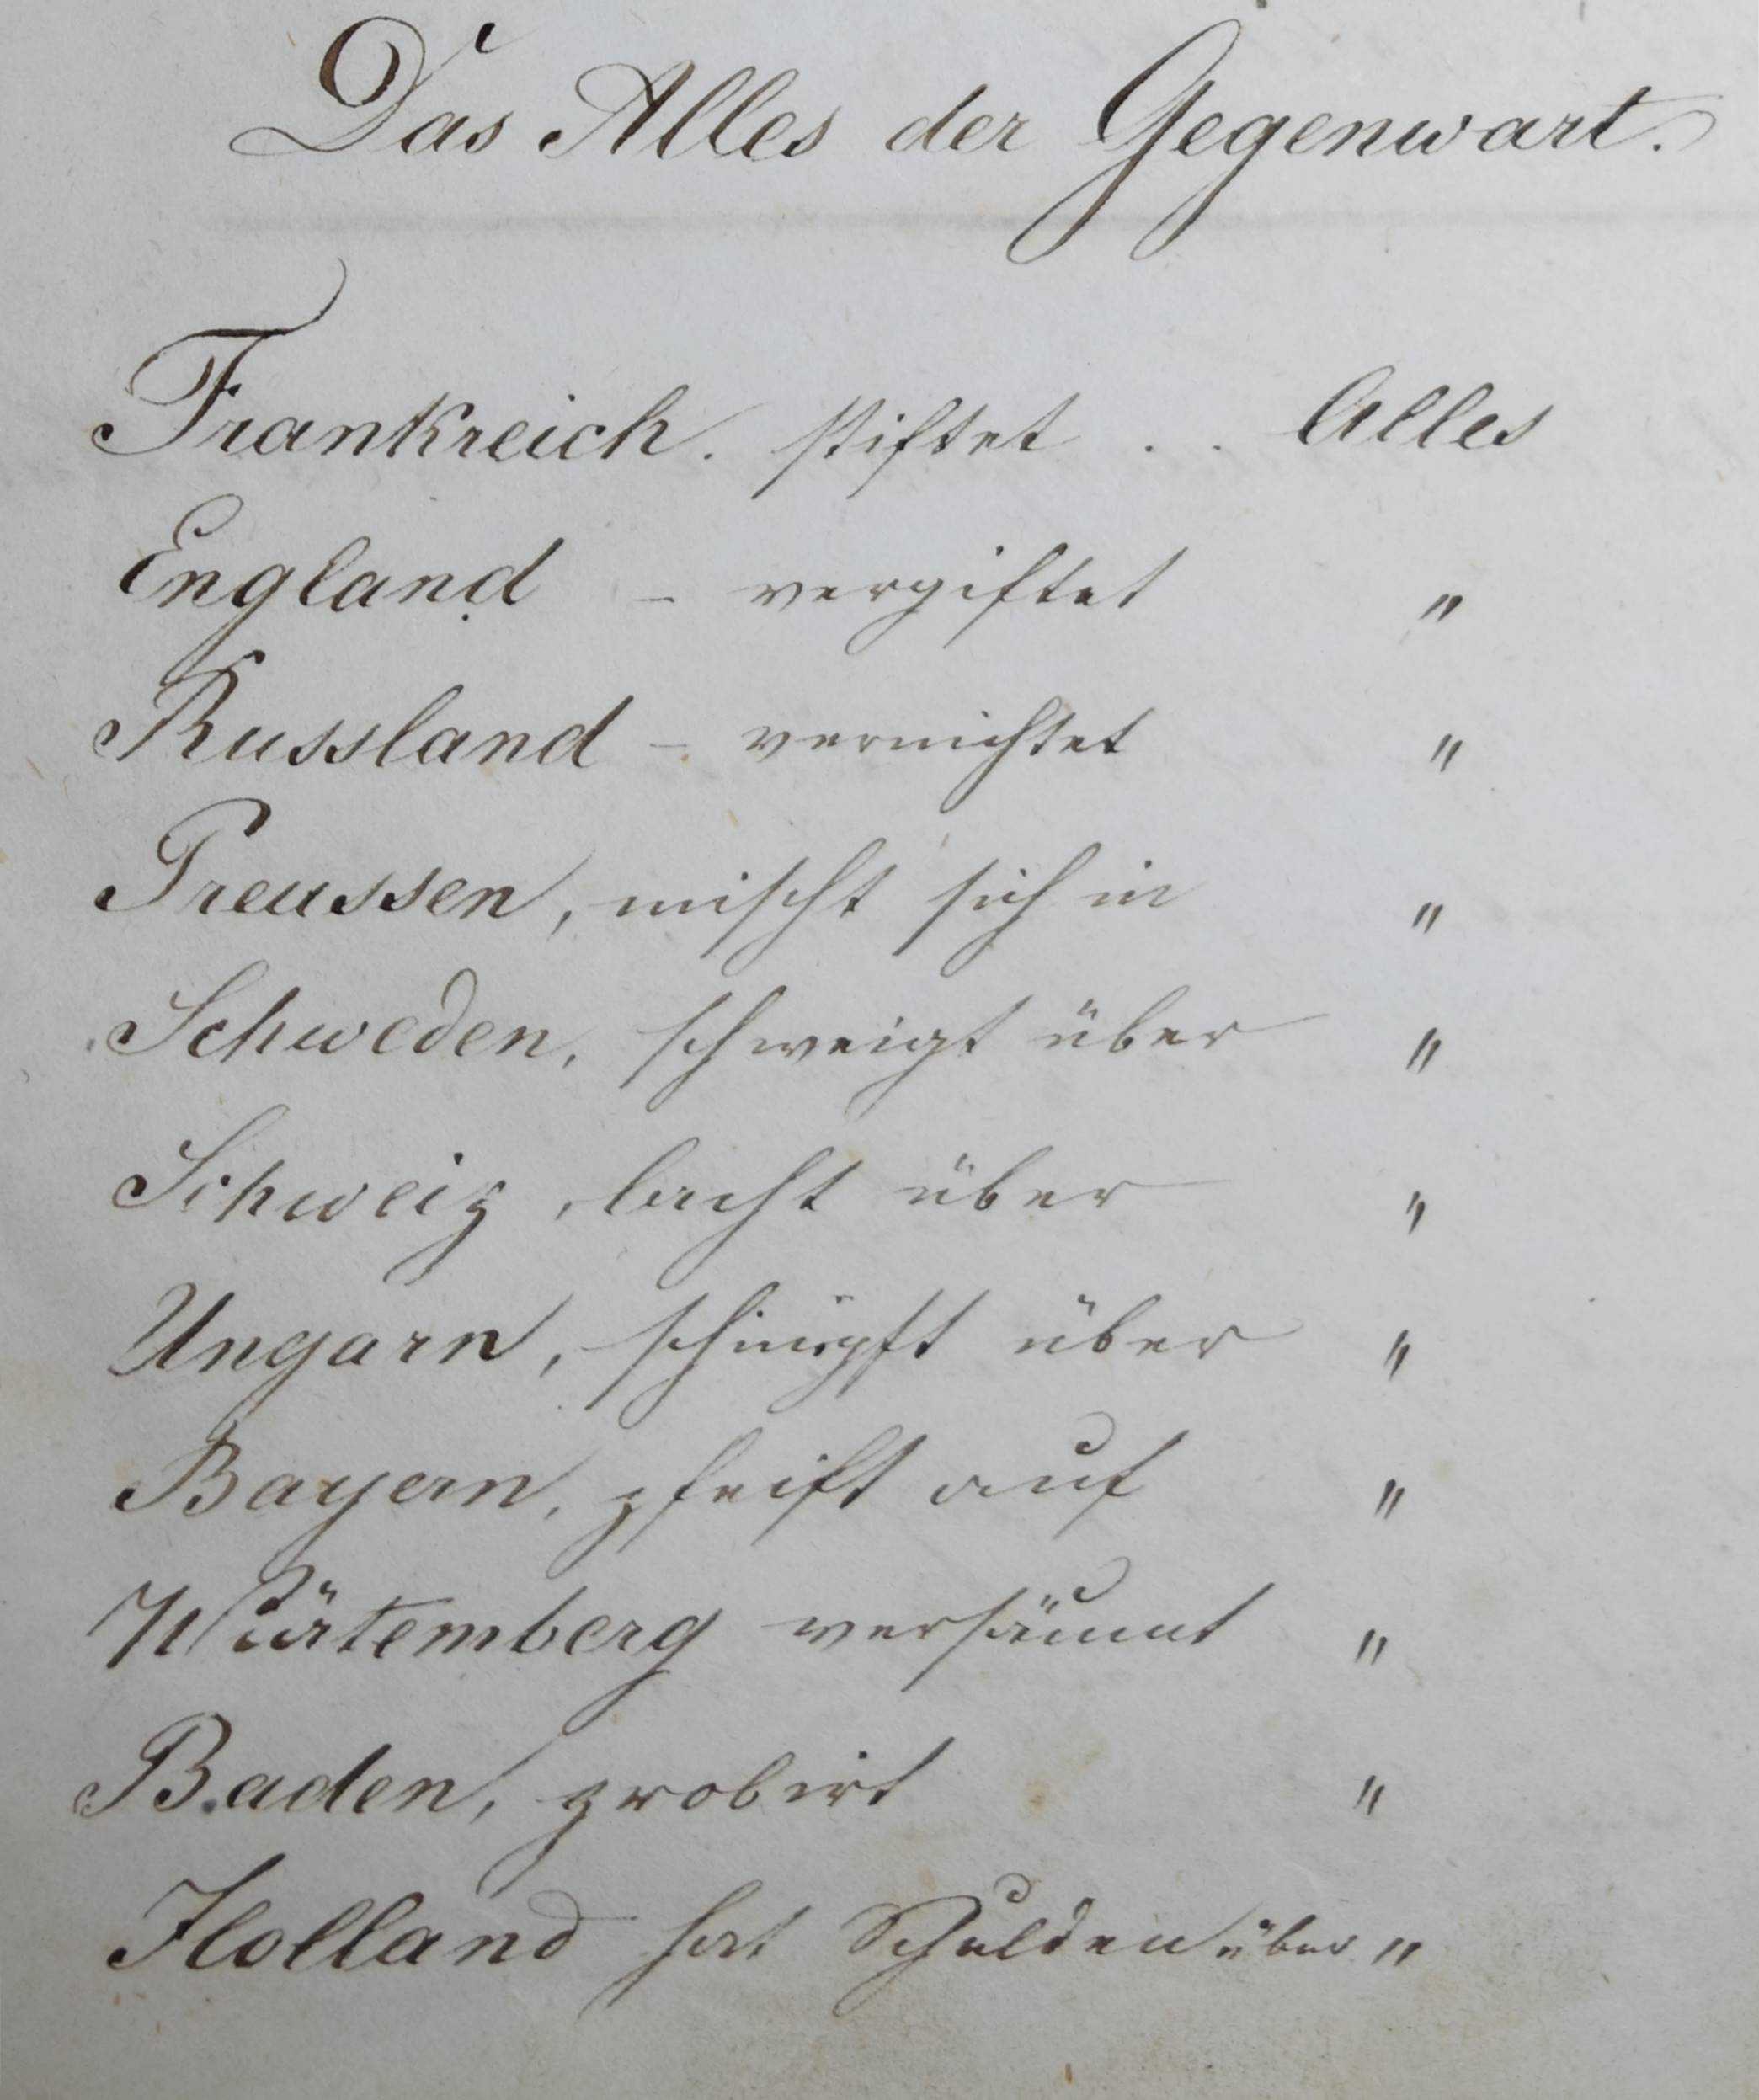 Das Alles der Gegenwart.
Frankreich. stiftet . . Alles
England - vergiftet "
Russland - vernichtet "
Preussen, mischt sich in "
Schweden, schweigt über "
Schweiz, lacht über "
Ungarn, schimpft über "
Bayern, pfeift auf "
Würtemberg versäumt "
Baden, probirt "
Holland hat Schulden über "